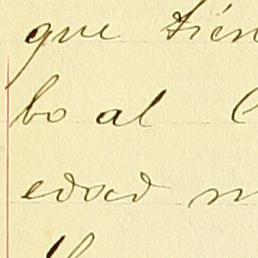 que tien
bo al
edad